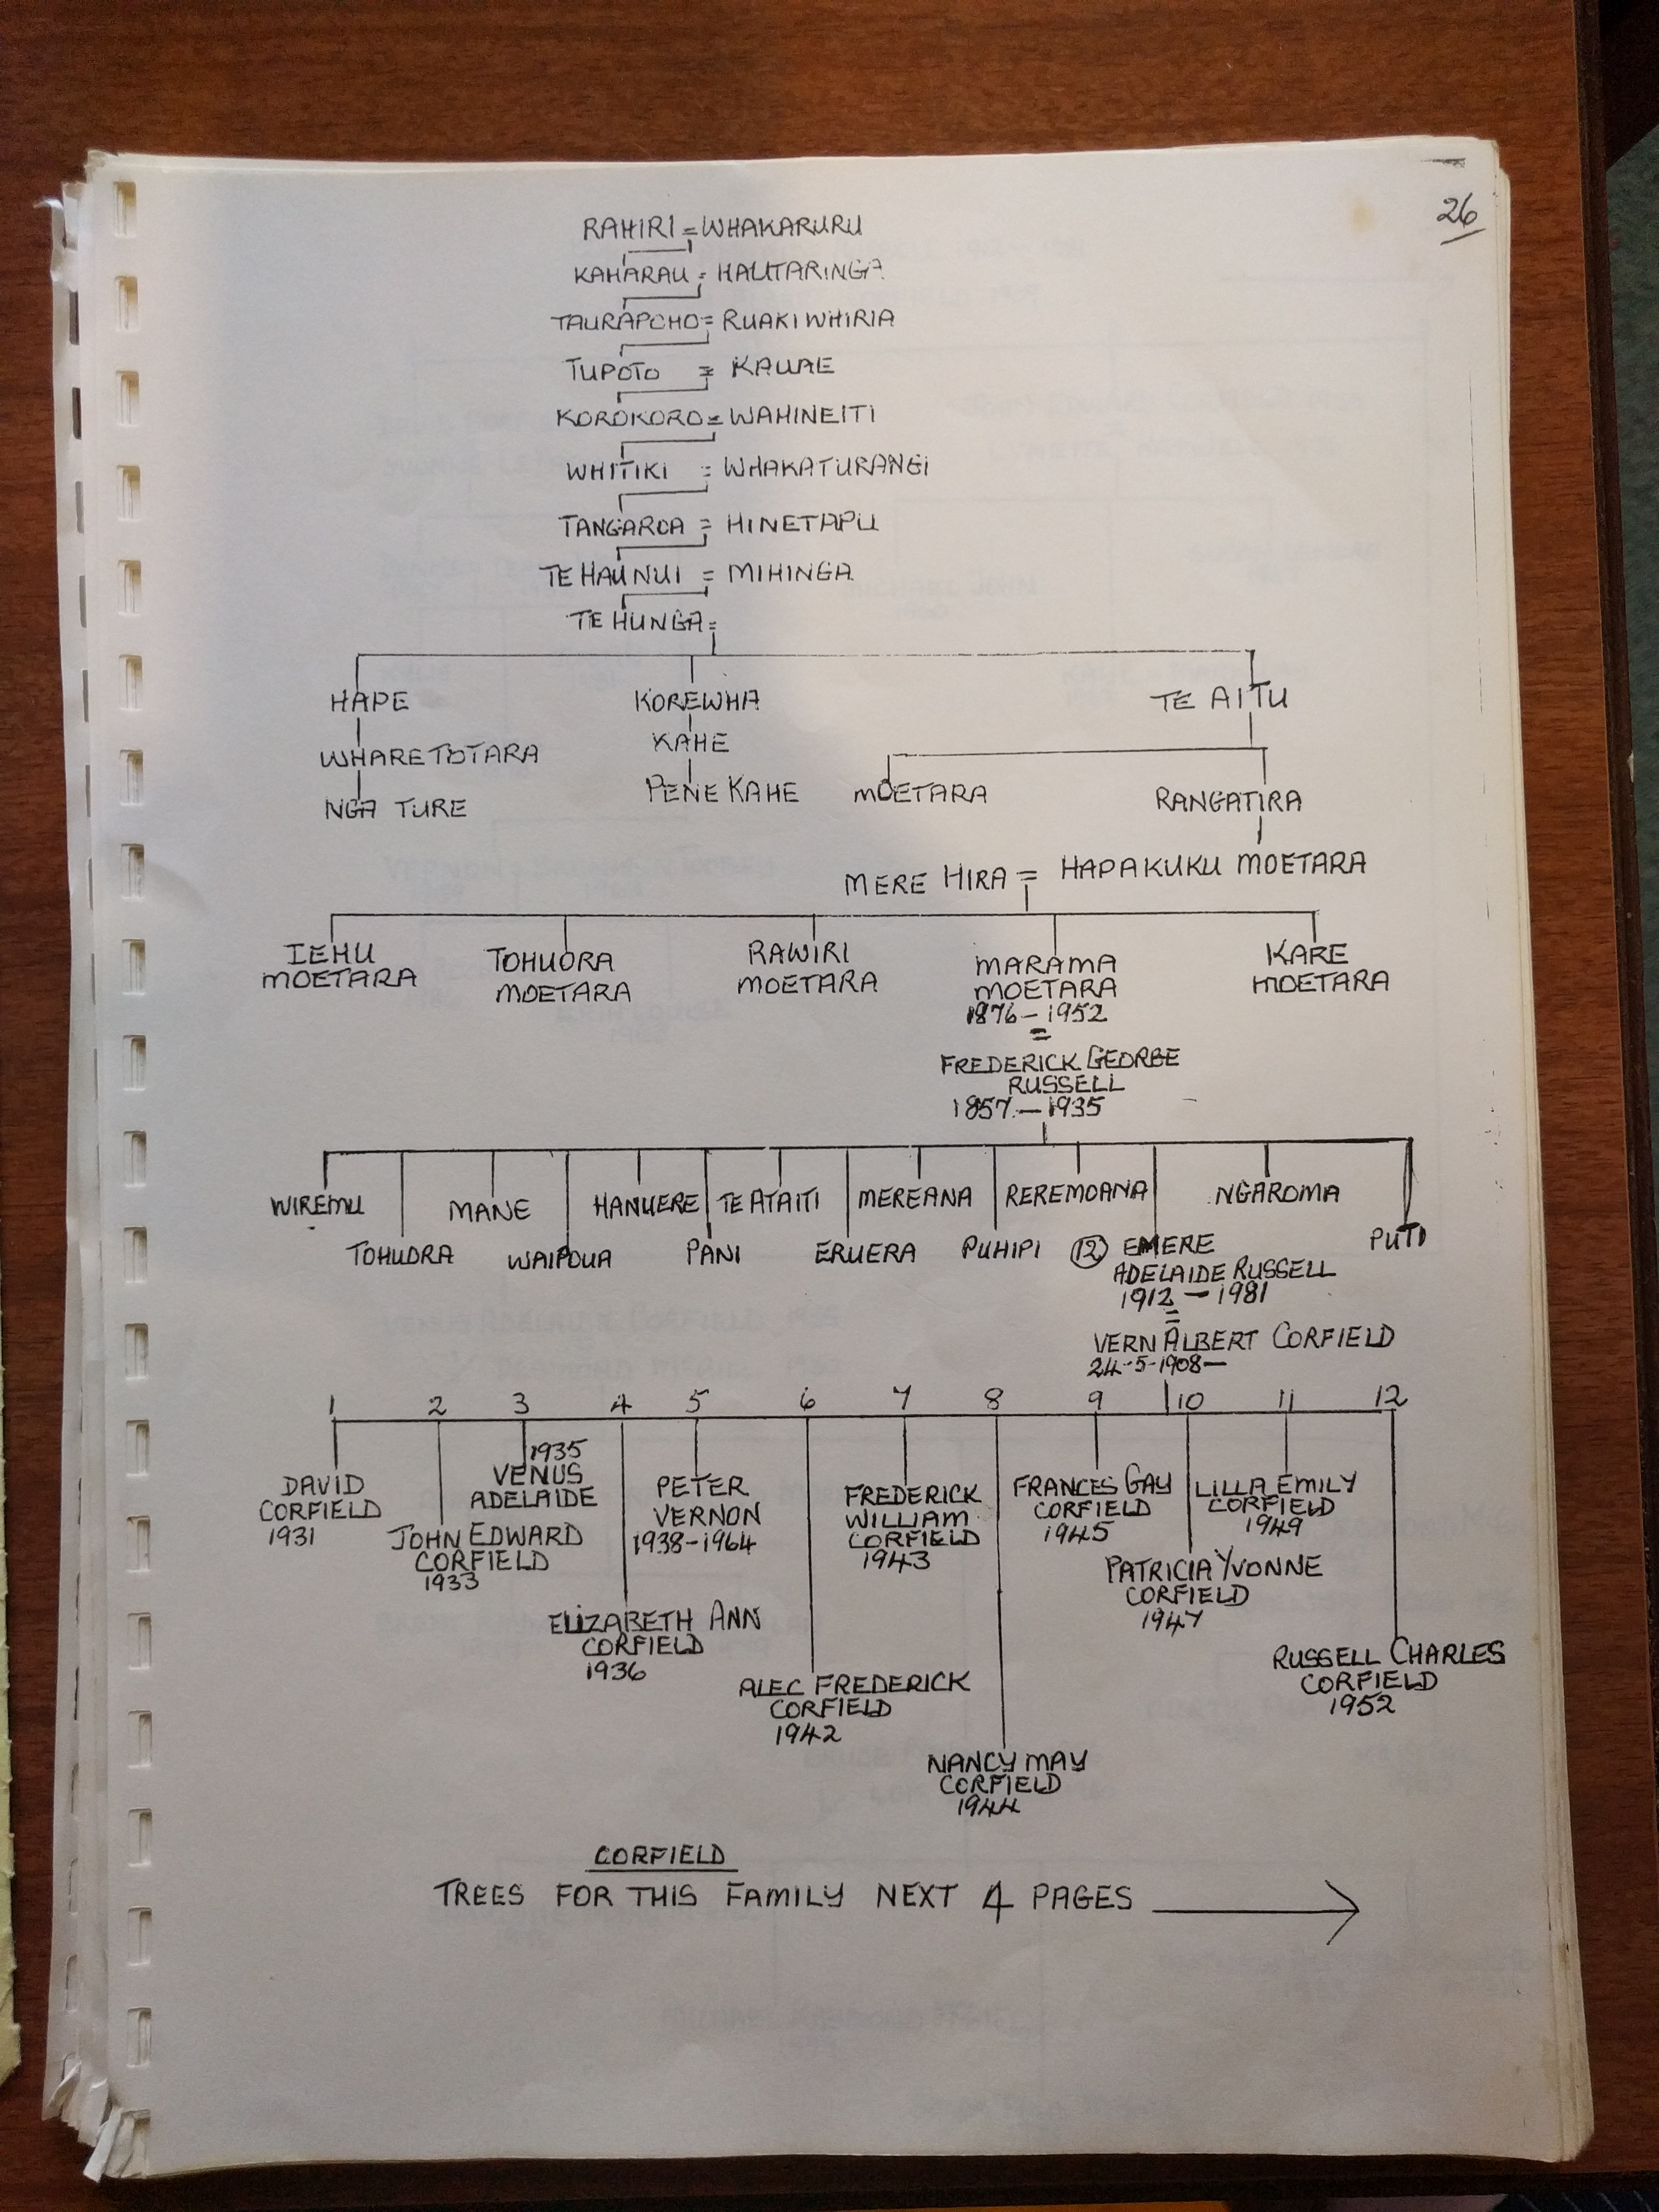 26
RAHIRI = WHAKARURU
KAHARAU = HAUTARINGA
TAURAPOHO = RUAKIWHIRIA
TUPOTO = KAWAE
KOROKORO = WAHINEITI
WHITIKI = WHAKATURANGI
TANGAROA = HINETAPU
TE HAUNUI = MIHINGA
TE HUNGA =
HAPE KOREWHA TE AITU
WHARETOTARA KAHE
NGA TURE PENE KAHE MOETARA RANGATIRA
MERE HIRA = HAPAKUKU MOETARA
IEHU
MOETARA
TOHUORA
MOETARA
RAWIRI
MOETARA
MARAMA
MOETARA
1876 - 1952
=
FREDERICK GEORGE
RUSSELL
1857. - 1935
KARE
MOETARA
WIREMU MANE HANUERE TE ATAITI MEREANA REREMOANA NGAROMA
TOHUORA WAIPOUA PANI ERUERA PUHIPI (12) EMERE PUTI
ADELAIDE RUSSELL
1912 - 1981
=
VERN ALBERT CORFIELD
24-5-1908-
1 2 3 4 5 6 7 8 9 10 11 12
DAVID
CORFIELD
1931
JOHN EDWARD
CORFIELD
1933
1935
VENUS
ADELAIDE
ELIZABETH ANN
CORFIELD
1936
PETER
VERNON
1938-1964
ALEC FREDERICK
CORFIELD
1942
FREDERICK
WILLIAM
CORFIELD
1943
NANCY MAY
CORFIELD
1944
FRANCES GAY
CORFIELD
1945
PATRICIA YVONNE
CORFIELD
1947
LILLA EMILY
CORFIELD
1949
RUSSELL CHARLES
CORFIELD
1952
CORFIELD
TREES FOR THIS FAMILY NEXT 4 PAGES